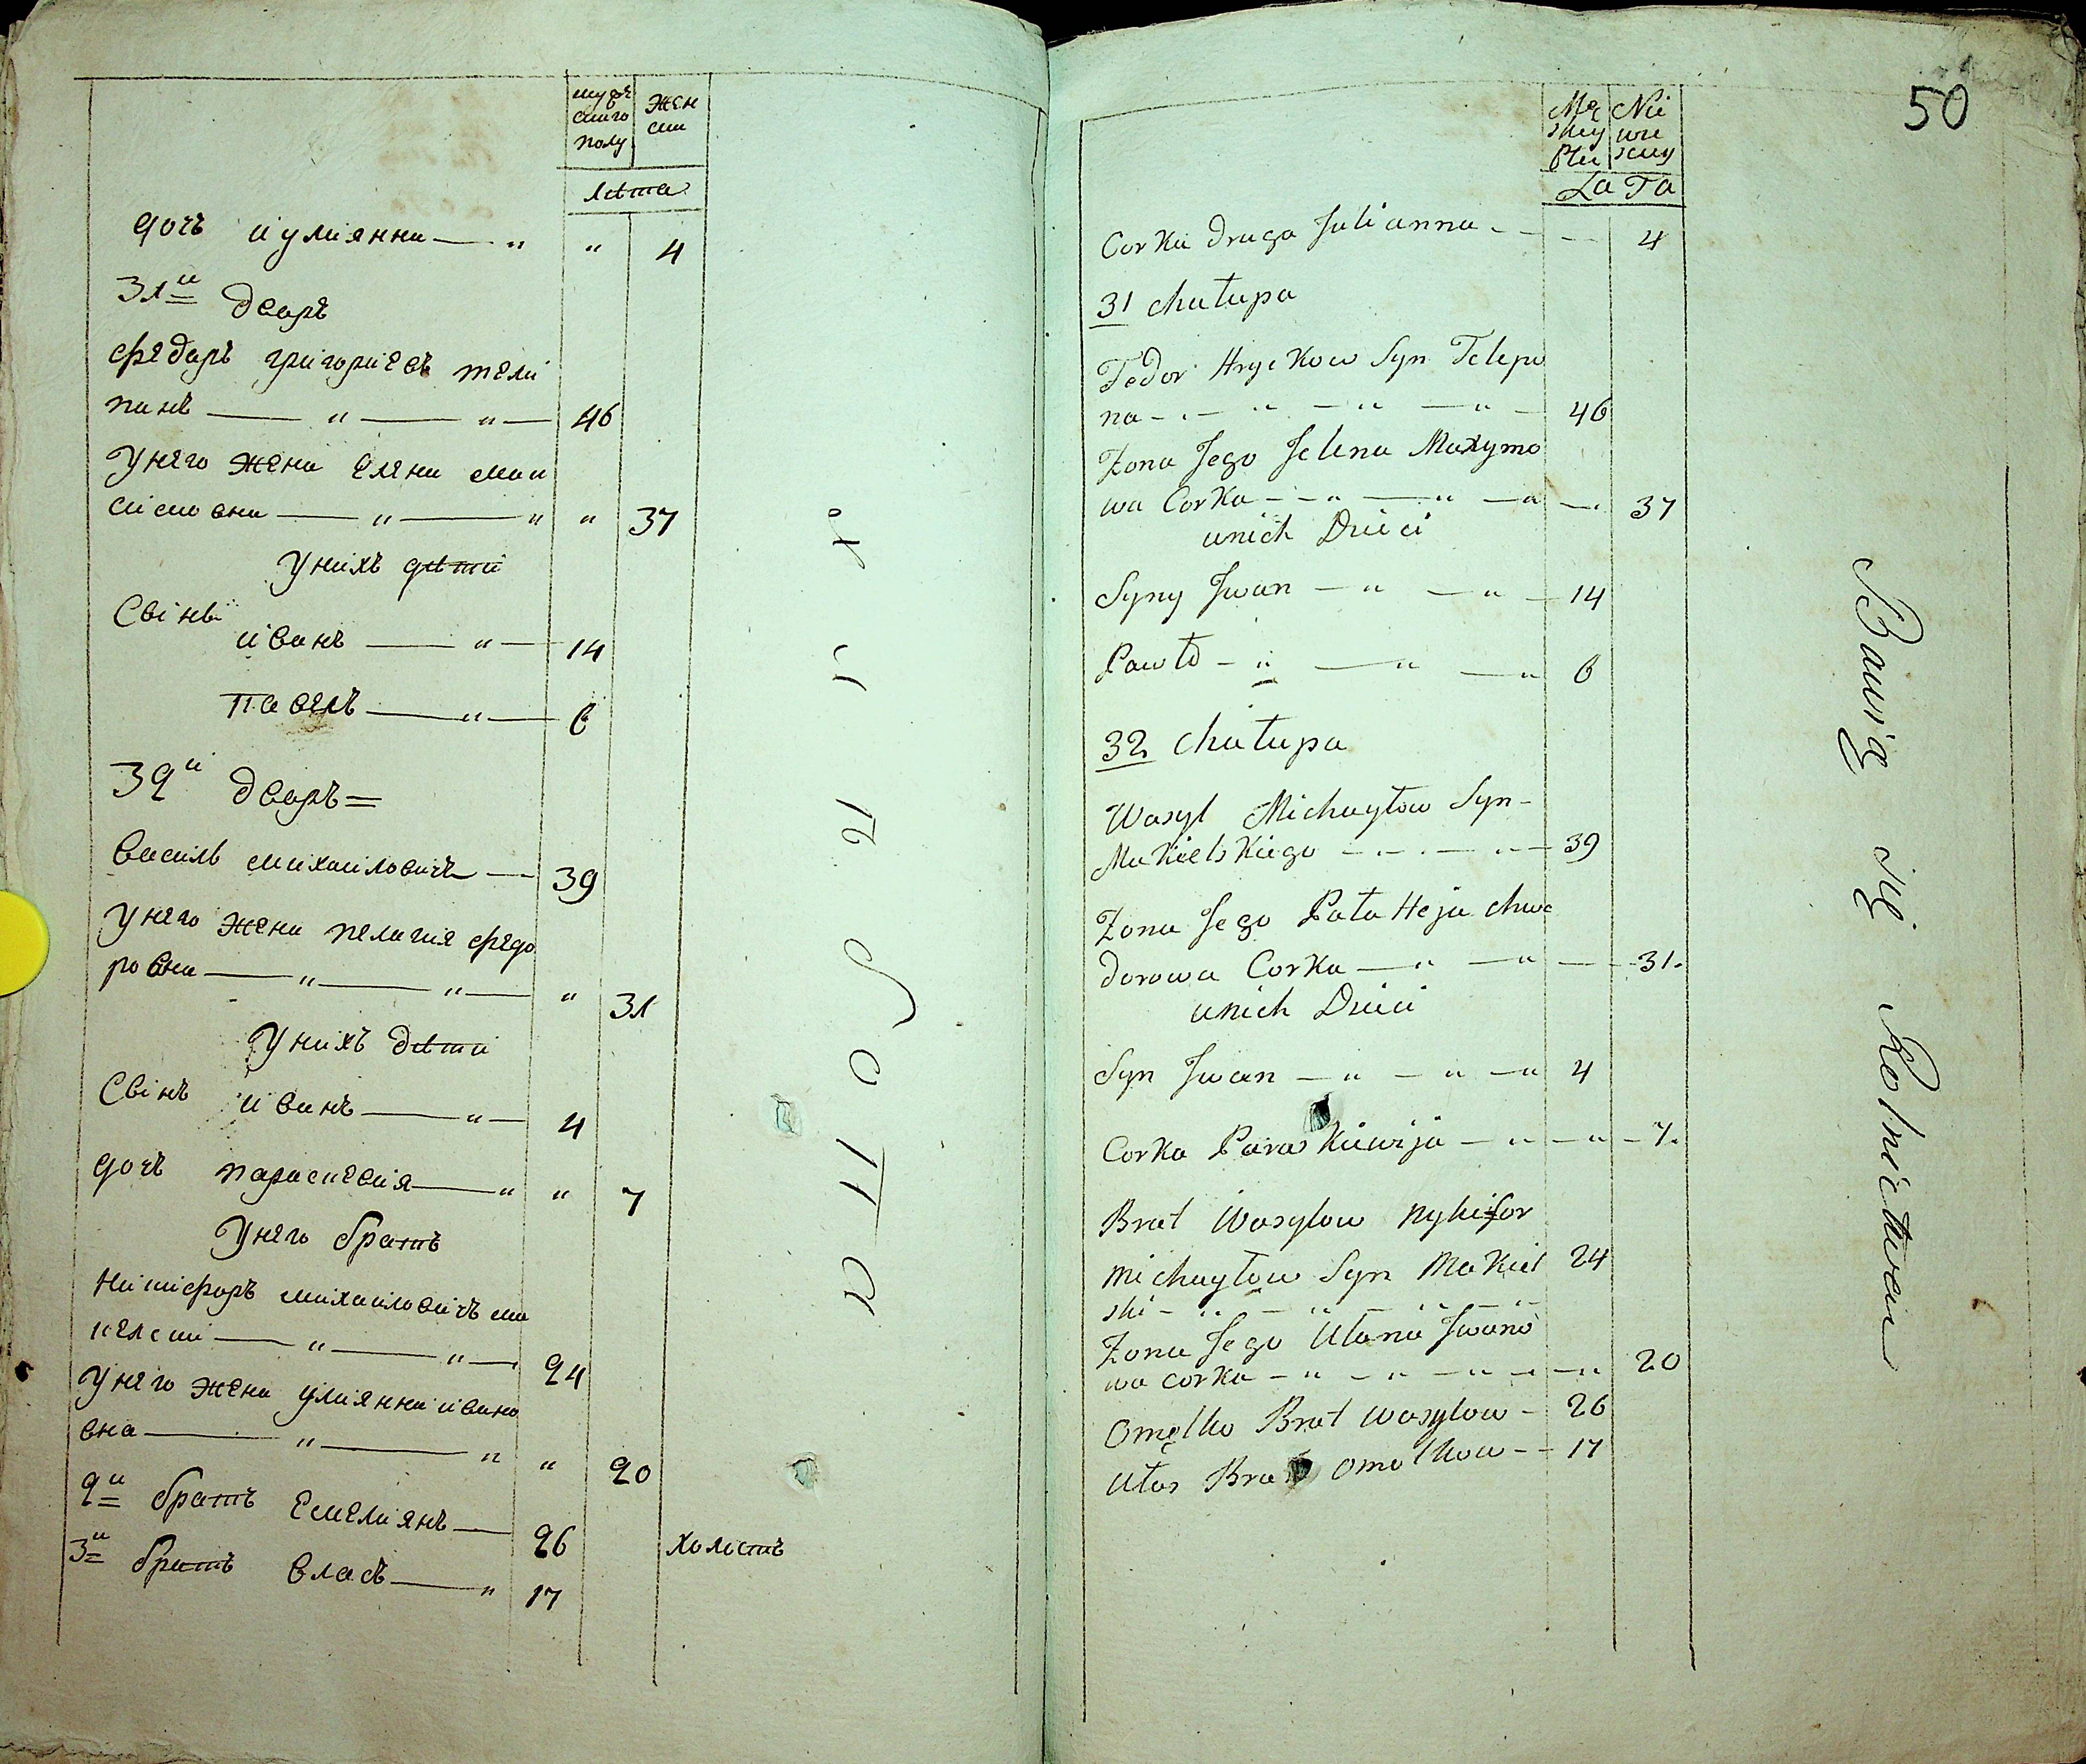 мужескаго полу
женскаго
лѣта
дочъ иулиянна — " " 4
31й дворъ
федоръ григориевъ тели
панъ — " — " — 46
У него жена Елена мак
симовна — " — " " 37
У нихъ дѣти
Свiнъ
иванъ — " — 14
павелъ — " — 6
32й дворъ =
василь михаиловичъ — 39
У него жена пелагия федо
ровна — " — " — " 31
У нихъ дѣти
Свiнъ иванъ — " — 4
дочъ параскевия — " " 7
У него братъ
Никифоръ михаиловичъ ма
келски — " — " — 24
У него жена улиянна ивано
вна — " — " " 20
2й братъ Емелиянъ — 26 холостъ
3й братъ власъ — " 17
50
Męskey Płci
Niewieściey
LaTa
Corka druga Julianna - - — 4
31 chałupa
Fedor Hryckow Syn Telepo
na - " - " - " — " — 46
Żona Jego Jelena Maxymo
wa Corka - - " — " — " — 37
unich Dzieci
Syny Jwan — " — " — 14
Pawło - " — " — " 6
32 chałupa
Wasyl Michayłow Syn -
Makielskiego - - - — " — 39
Żona Jego Pałaheja chwe
dorowa Corka — " — " — 31.
unich Dzieci
Syn Jwan — " — " — " 4
Corka Paraskiewija — " — " — 7.
Brat Wasylow Nykifor
Michayłow Syn Makiel 24
ski - " - " - " - "
Żona Jego Ulana Jwano
wa corka - " - " — " — " 20
Omelko Brat Wasylow - 26
Ułas Brat Omelkow - - 17
Bawią się Rolnictwem